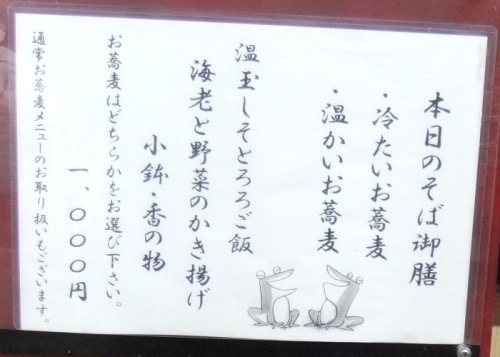 本日のそば御膳
・冷たいお蕎麦
・温かいお蕎麦
温玉しそとろろご飯
海老と野菜のかき揚げ
小鉢・香の物
お蕎麦はどちらかをお選び下さい。
一、〇〇〇円
通常お蕎麦メニューのお取り扱いもございます。